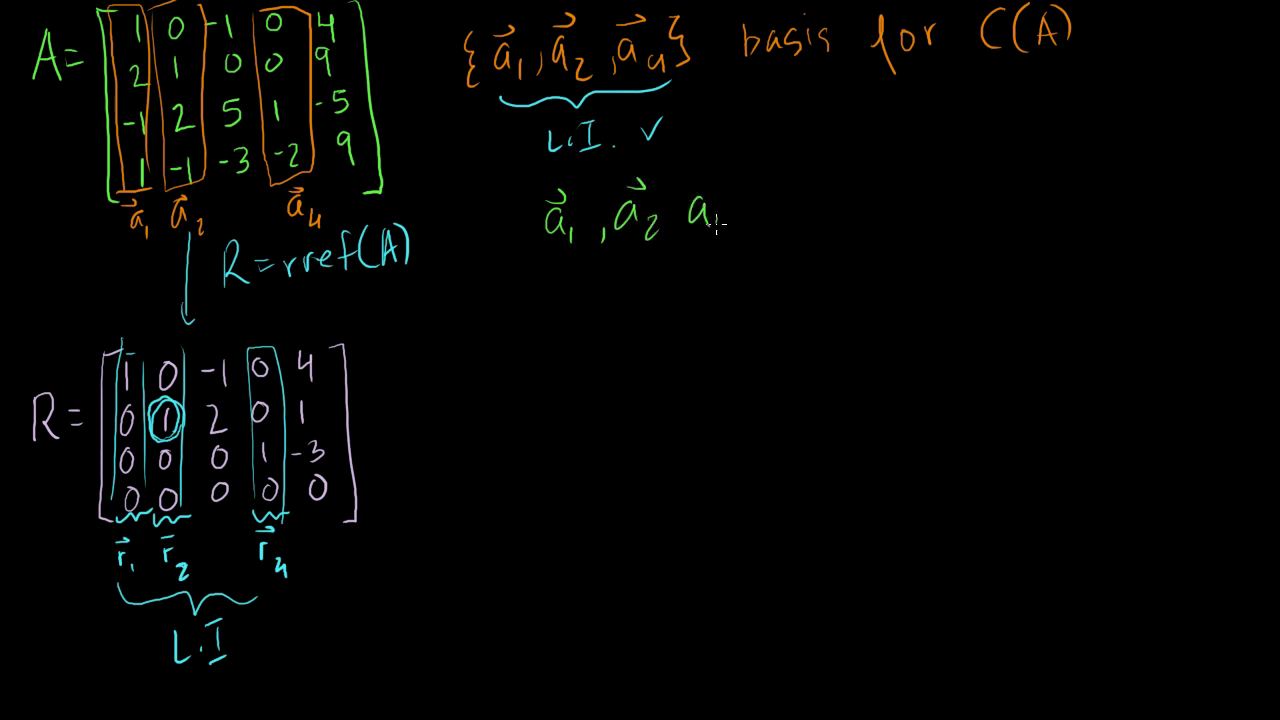 A = [ 1 0 -1 0 4
2 1 0 0 9
-1 2 5 1 -5
1 -1 -3 -2 9 ]
a⃗₁ a⃗₂ a⃗₄
R = rref(A)
R = [ 1 0 -1 0 4
0 1 2 0 1
0 0 0 1 -3
0 0 0 0 0 ]
r⃗₁ r⃗₂ r⃗₄
L.I
{a⃗₁, a⃗₂, a⃗₄} basis for C(A)
L.I. ✓
a⃗₁, a⃗₂ a